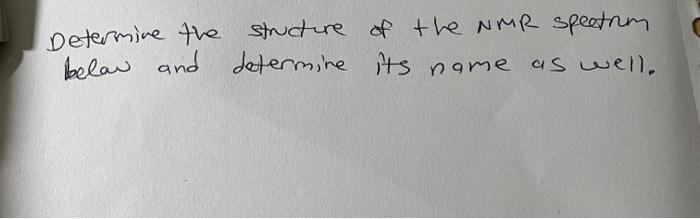 Determine the structure of the NMR spectrum
below and determine its name as well.